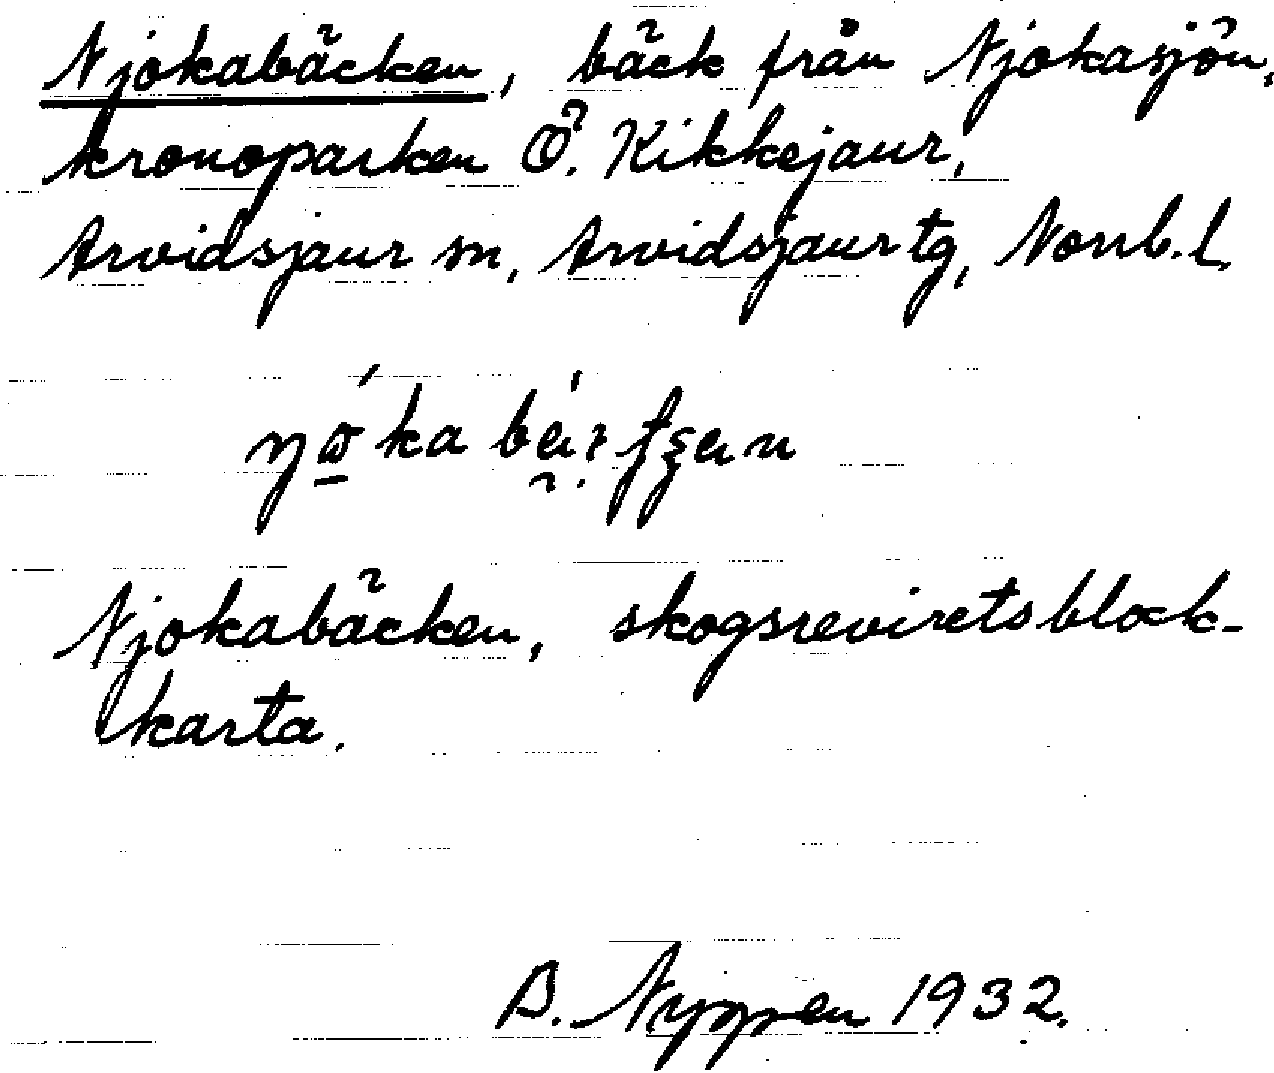 Njokabäcken, bäck från Njokasjön,
kronoparken Ö. Kikkejaur,
Arvidsjaur sn, Arvidsjaur tg, Norrb. l.
Njokabäcken, skogsrevirets block-
karta.
1932.